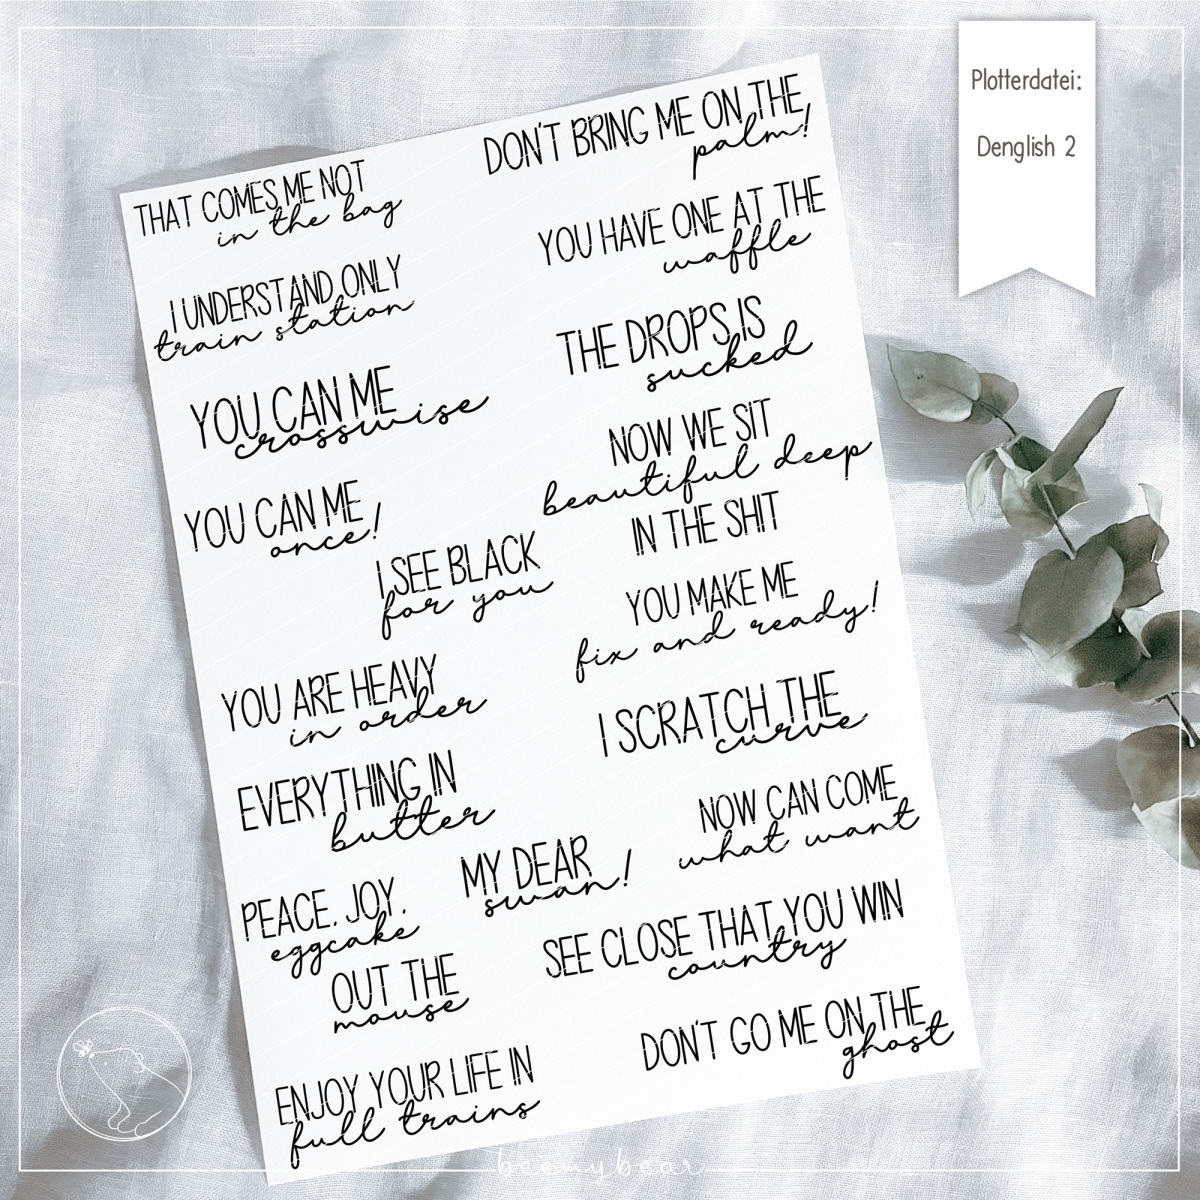 Plotterdatei:
Denglish 2
THAT COMES ME NOT
in the bag
I UNDERSTAND ONLY
train station
YOU CAN ME
crosswise
YOU CAN ME
once!
I SEE BLACK
for you
YOU ARE HEAVY
in order
EVERYTHING IN
butter
MY DEAR
swan!
PEACE, JOY,
eggcake
OUT THE
mouse
ENJOY YOUR LIFE IN
full trains
DON'T BRING ME ON THE
palm!
YOU HAVE ONE AT THE
waffle
THE DROPS IS
sucked
NOW WE SIT
beautiful deep
IN THE SHIT
YOU MAKE ME
fix and ready!
I SCRATCH THE
curve
NOW CAN COME
what want
SEE CLOSE THAT YOU WIN
country
DON'T GO ME ON THE
ghost
beemybear